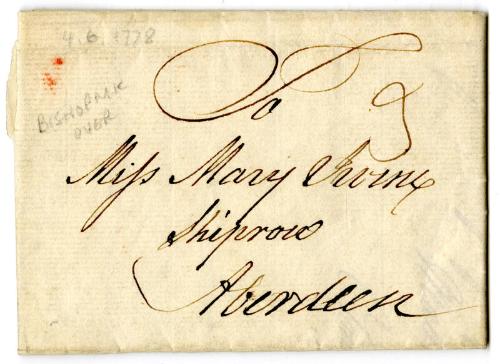 4.6.1778
BISHOPMK
OVER
To
Miss Mary Irvine
Shiprow
Aberdeen